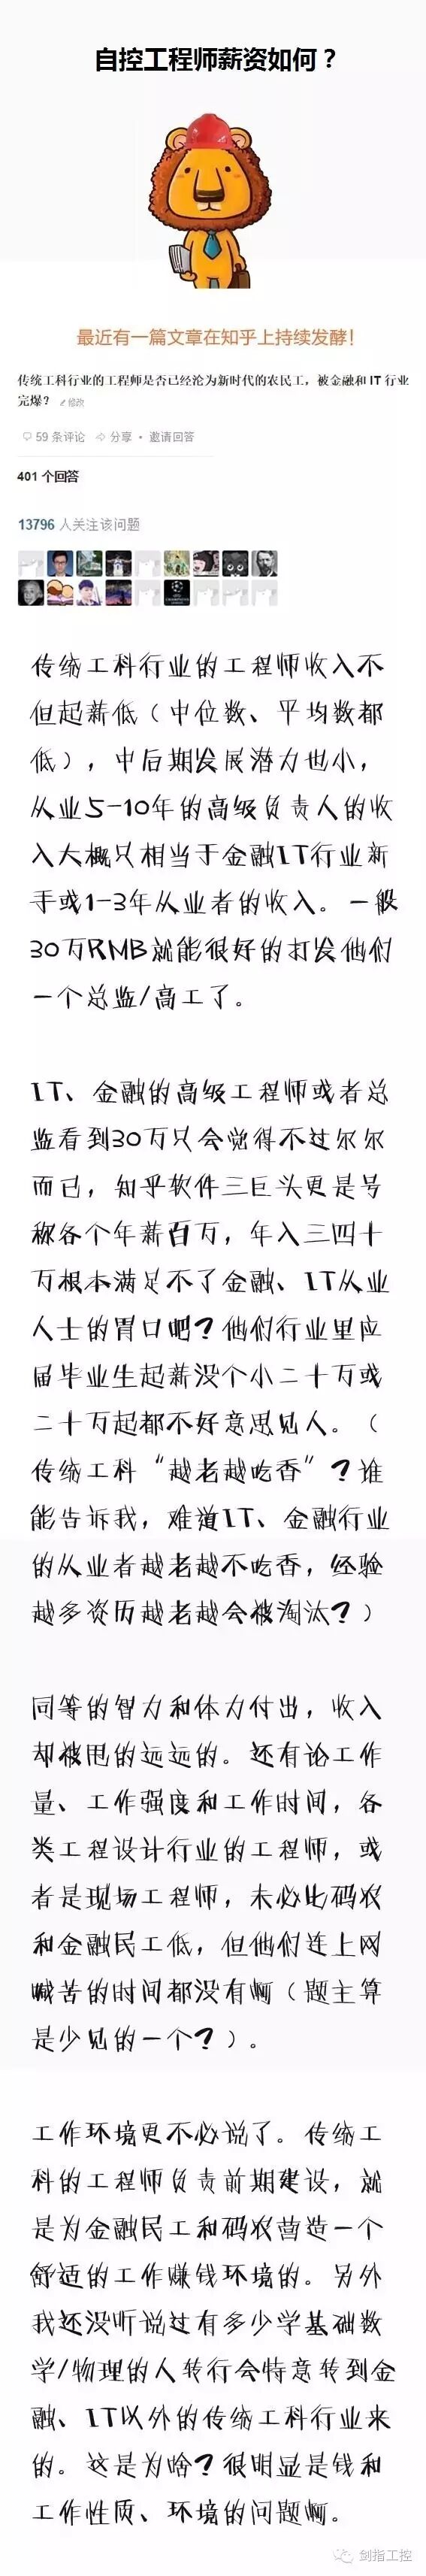 自控工程师薪资如何？
最近有一篇文章在知乎上持续发酵！
传统工科行业的工程师是否已经沦为新时代的农民工，被金融和 IT 行业
完爆？ 修改
59 条评论 分享 • 邀请回答
401 个回答
13796 人关注该问题
传统工科行业的工程师收入不
但起薪低（中位数、平均数都
低），中后期发展潜力也小，
从业5-10年的高级负责人的收
入大概只相当于金融IT行业新
手或1-3年从业者的收入。一般
30万RMB就能很好的打发他们
一个总监/高工了。
IT、金融的高级工程师或者总
监看到30万只会觉得不过尔尔
而已，知乎软件三巨头更是号
称各个年薪百万，年入三四十
万根本满足不了金融、IT从业
人士的胃口吧？他们行业里应
届毕业生起薪没个小二十万或
二十万起都不好意思见人。（
传统工科“越老越吃香”？谁
能告诉我，难道IT、金融行业
的从业者越老越不吃香，经验
越多资历越老越会被淘汰？）
同等的智力和体力付出，收入
却被甩的远远的。还有论工作
量、工作强度和工作时间，各
类工程设计行业的工程师，或
者是现场工程师，未必比码农
和金融民工低，但他们连上网
喊苦的时间都没有啊（题主算
是少见的一个？）。
工作环境更不必说了。传统工
科的工程师负责前期建设，就
是为金融民工和码农营造一个
舒适的工作赚钱环境的。另外
我还没听说过有多少学基础数
学/物理的人转行会特意转到金
融、IT以外的传统工科行业来
的。这是为啥？很明显是钱和
工作性质、环境的问题啊。
剑指工控